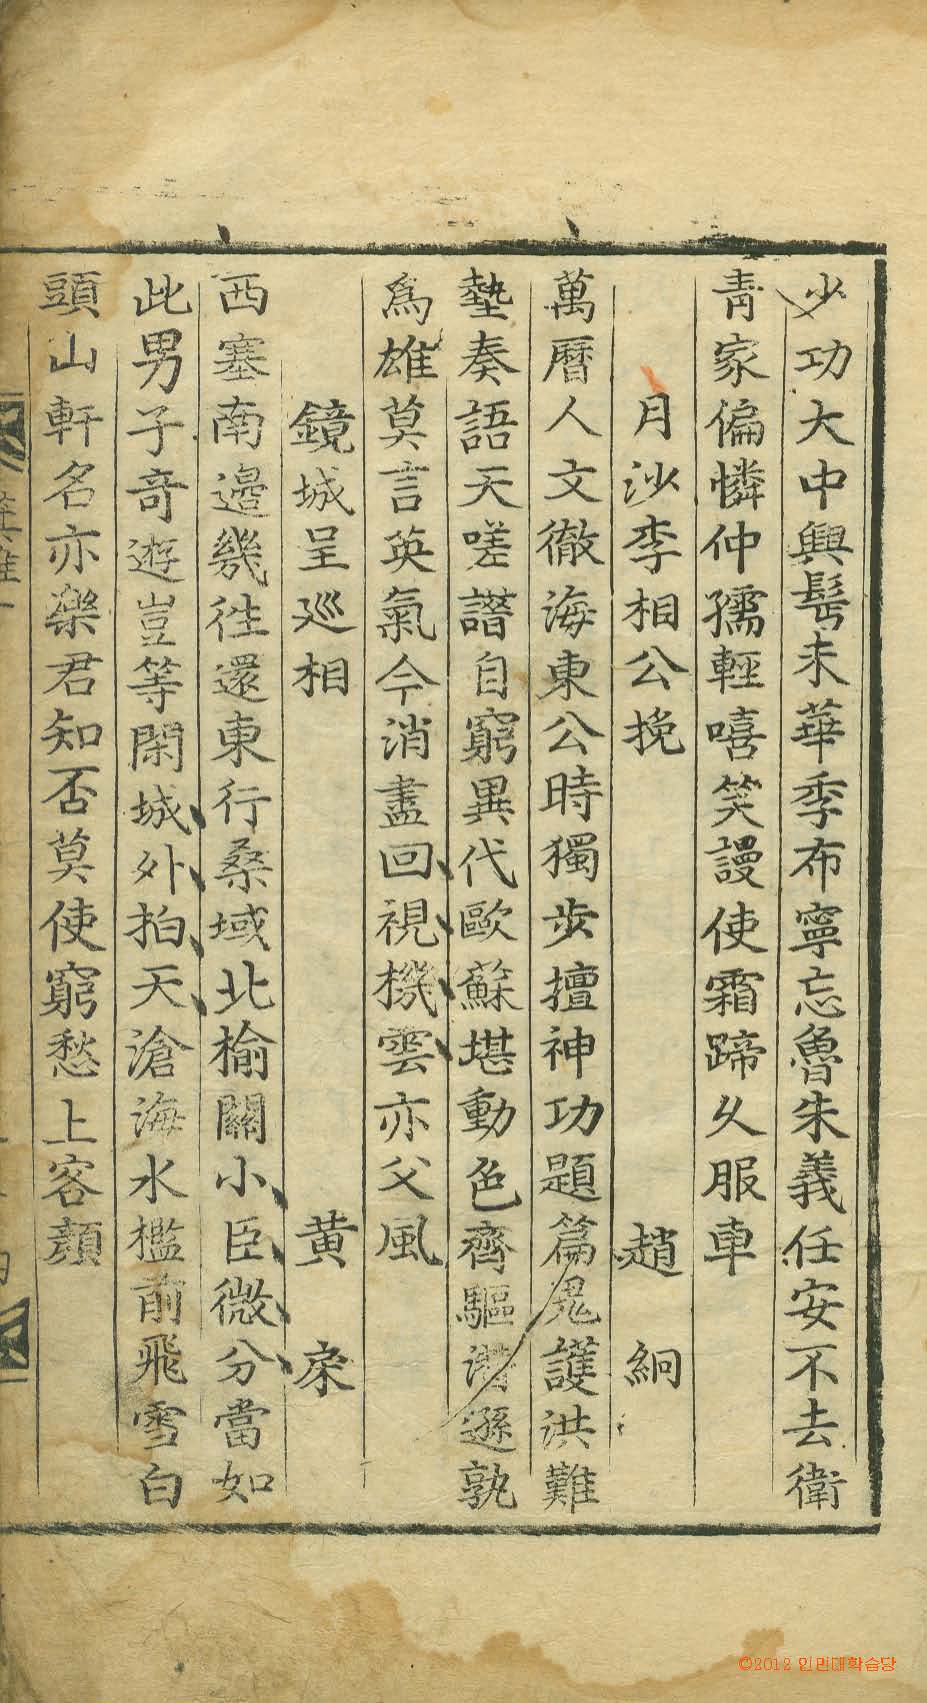 少功大中興髩未華季布寧忘魯朱義任安不去衛
青家偏憐仲孺輕嘻笑謾使霜蹄久服車
月沙李相公挽 趙絅
萬曆人文徹海東公時獨步擅神功題篇鬼護洪難
墊奏語天嗟譖自窮異代歐蘇堪動色齊驅遜孰
爲雄莫言英氣今消盡回視機雲亦父風
鏡城呈巡相 黄床
西塞南邉幾徃還東行桑域北榆關小臣微分當如
此男子奇遊豈等閑城外拍天滄海水檻前飛雪白
頭山軒名亦樂君知否莫使窮愁上客顔
©2012 인민대학습당